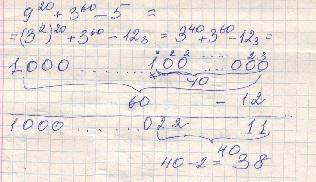 9²⁰ + 3⁶⁰ − 5 =
= (3²)²⁰ + 3⁶⁰ − 12₃ = 3⁴⁰ + 3⁶⁰ − 12₃ =
1000 ........ 100 .... 000
0 2 2 2 3
40
60 − 12
1000 ........ 022 11
40
40 − 2 = 38